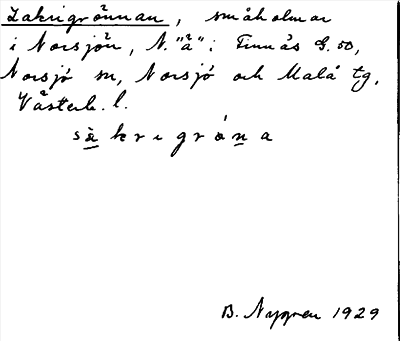 Zakrigrönnan, småholmar
i Norsjön, N. "ä": Finnäs G. 50,
Norsjö sn, Norsjö och Malå tg,
Västerb. l.
sàkrigróna
B. Nygren 1929